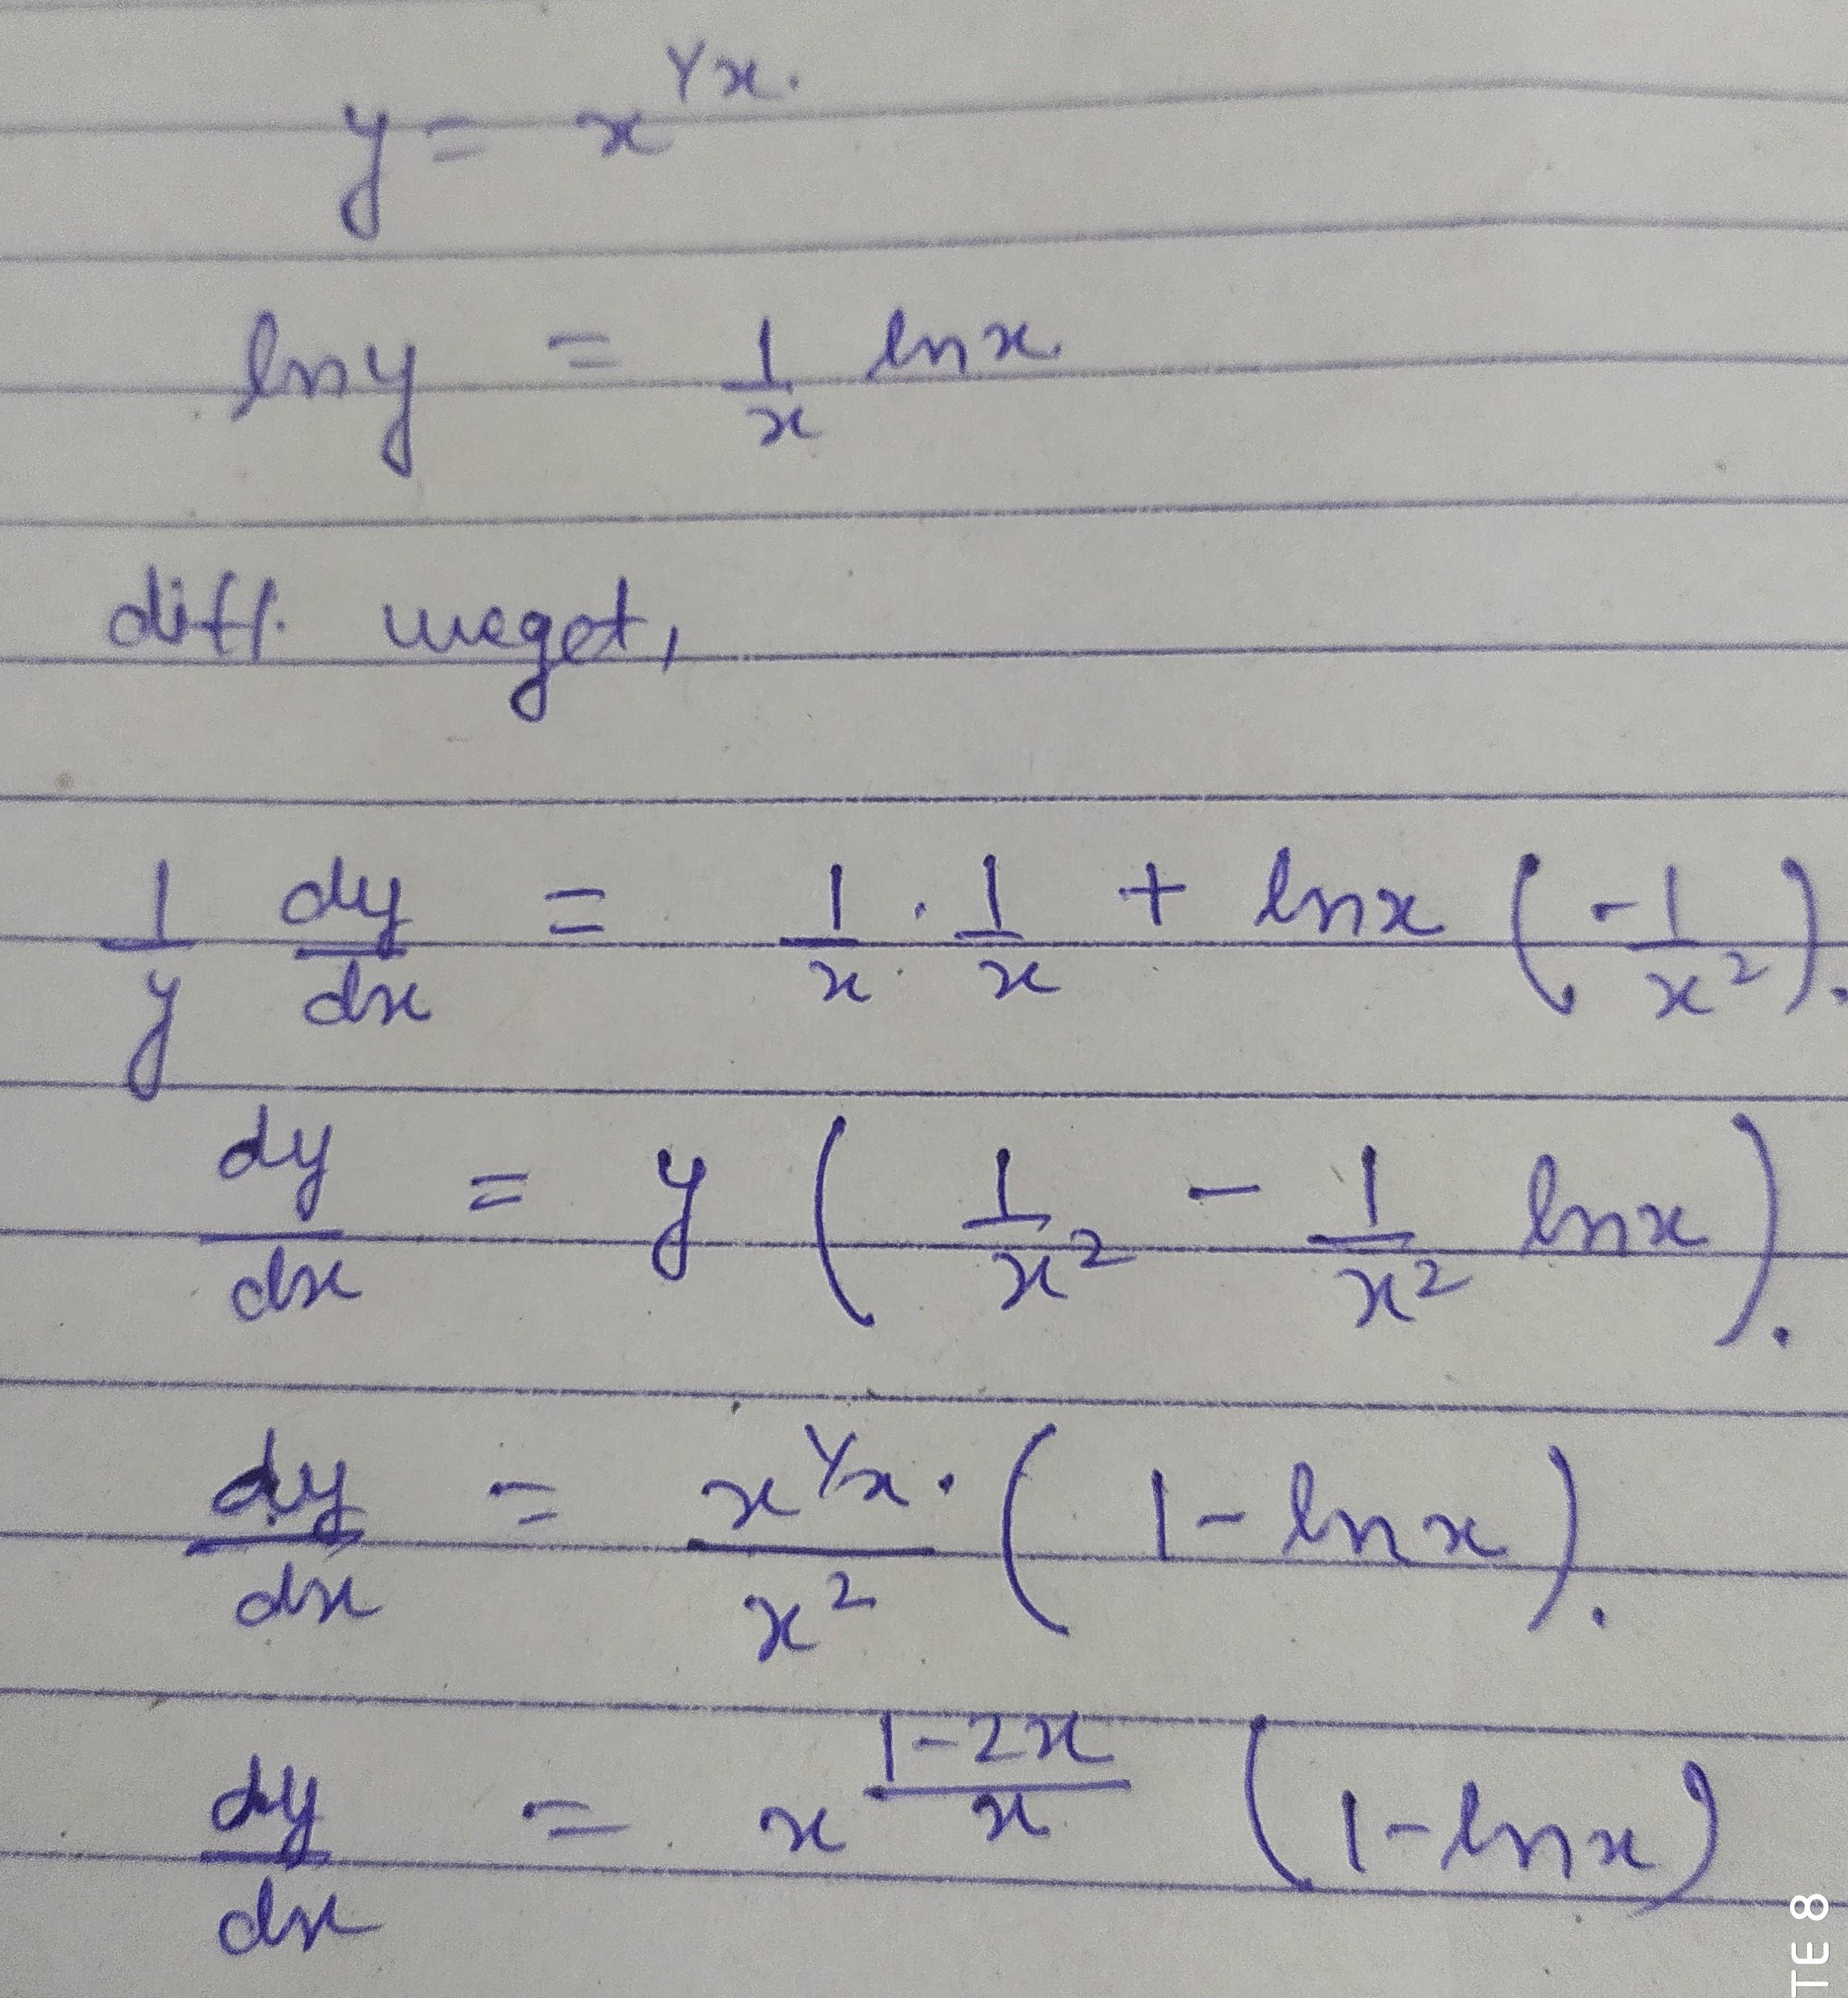 y = x^{1/x}.
ln y = \frac{1}{x} ln x.
diff. we get,
\frac{1}{y} \frac{dy}{dx} = \frac{1}{x} . \frac{1}{x} + ln x (-\frac{1}{x^2}).
\frac{dy}{dx} = y (\frac{1}{x^2} - \frac{1}{x^2} ln x).
\frac{dy}{dx} = \frac{x^{1/x}.}{x^2} (1 - ln x).
\frac{dy}{dx} = x^{\frac{1-2x}{x}} (1 - ln x)
TE 8